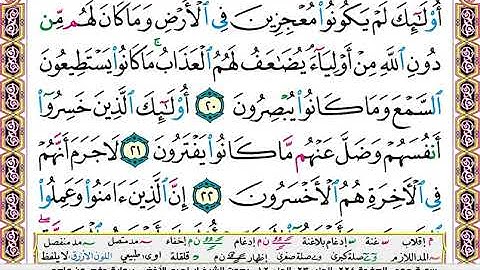 أُوْلَٰٓئِكَ لَمْ يَكُونُوا۟ مُعْجِزِينَ فِى ٱلْأَرْضِ وَمَا كَانَ لَهُم مِّن
دُونِ ٱللَّهِ مِنْ أَوْلِيَآءَ يُضَٰعَفُ لَهُمُ ٱلْعَذَابُ مَا كَانُوا۟ يَسْتَطِيعُونَ
ٱلسَّمْعَ وَمَا كَانُوا۟ يُبْصِرُونَ ٢٠ أُوْلَٰٓئِكَ ٱلَّذِينَ خَسِرُوٓا۟
أَنفُسَهُمْ وَضَلَّ عَنْهُم مَّا كَانُوا۟ يَفْتَرُونَ ٢١ لَا جَرَمَ أَنَّهُمْ
فِى ٱلْأَخِرَةِ هُمُ ٱلْأَخْسَرُونَ ٢٢ إِنَّ ٱلَّذِينَ ءَامَنُوا۟ وَعَمِلُوا۟
م إقلاب غنة إدغام بلاغنة إدغام إخفاء مد متصل مد منفصل
المد اللازم مد عارض صلة صغرى صلة كبرى إظهار قلقلة طبيعي اللون الأزرق لا يلفظ